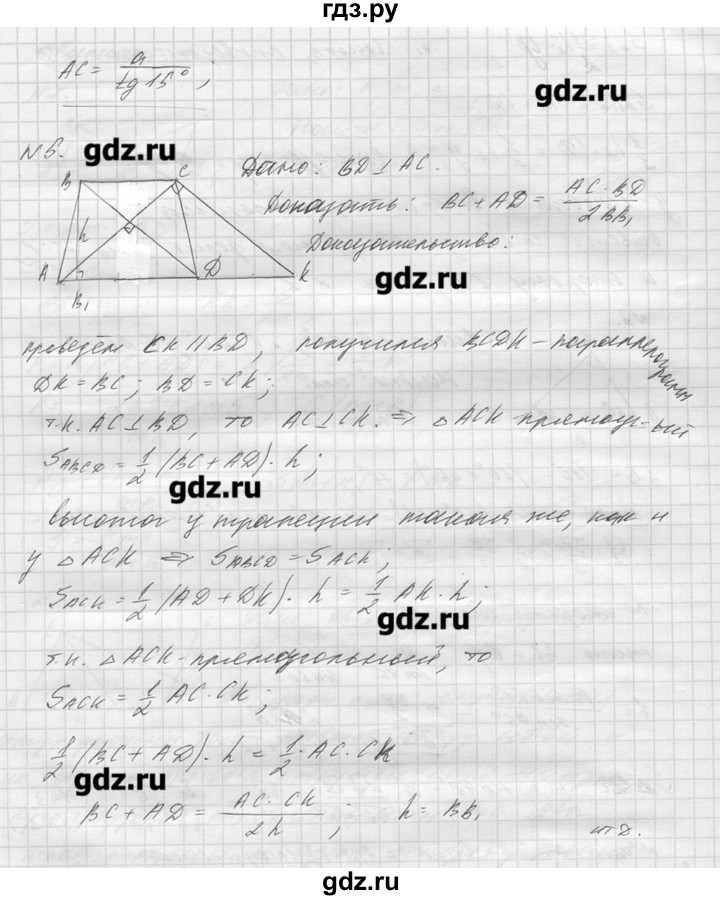 гдз.ру
AC = a / tg 15° ;
gdz.ru
N 5.
gdz.ru
Дано: BD ⊥ AC.
Доказать: BC + AD = AC · BD / 2 BB₁
Доказательство:
B
C
h
A
B₁
D
K
gdz.ru
проведём CK || BD, получился BCDK - параллелограмм
DK = BC ; BD = CK ;
т.к. AC ⊥ BD, то AC ⊥ CK. ⇒ △ ACK прямоуг-ый
S ABCD = 1/2 (BC + AD) · h ;
gdz.ru
высота у трапеции такая же, как и
у △ ACK ⇒ S ABCD = S ACK ;
S ACK = 1/2 (AD + DK) · h = 1/2 AK · h ;
gdz.ru
т.к. △ ACK - прямоугольный, то
S ACK = 1/2 AC · CK ;
1/2 (BC + AD) · h = 1/2 · AC · CK
gdz.ru
BC + AD = AC · CK / 2h ; h = BB₁
чтд.
gdz.ru